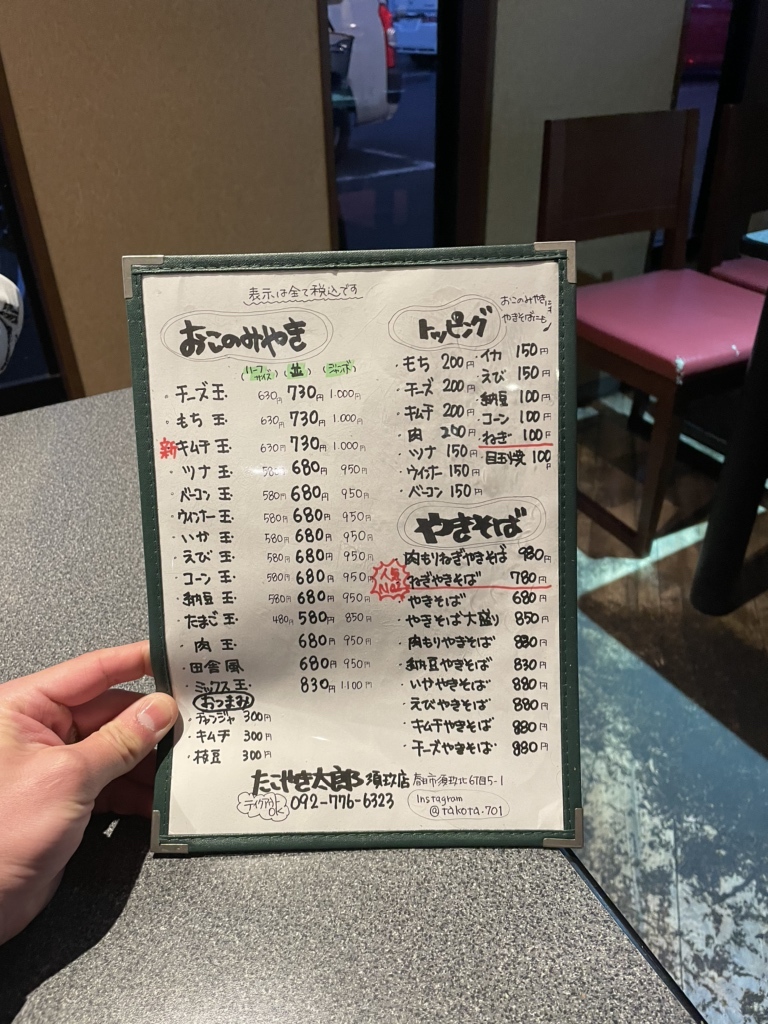 表示は全て税込です
おこのみやき
(ハーフサイズ) (並) (ジャンボ)
・チーズ玉 630円 730円 1.000円
・もち玉 630円 730円 1.000円
新 キムチ玉 630円 730円 1.000円
・ツナ玉 580円 680円 950円
・ベーコン玉 580円 680円 950円
・ウィンナー玉 580円 680円 950円
・いか玉 580円 680円 950円
・えび玉 580円 680円 950円
・コーン玉 580円 680円 950円
・納豆玉 580円 680円 950円
・たまご玉 480円 580円 850円
・肉玉 680円 950円
・田舎風 680円 950円
・ミックス玉 830円 1.100円
おつまみ
・チャンジャ 300円
・キムチ 300円
・枝豆 300円
トッピング
おこのみやきにも
やきそばにも
・もち 200円
・チーズ 200円
・キムチ 200円
・肉 200円
・ツナ 150円
・ウィンナー 150円
・ベーコン 150円
・イカ 150円
・えび 150円
・納豆 100円
・コーン 100円
・ねぎ 100円
・目玉焼 100円
やきそば
・肉もりねぎやきそば 930円
人気No.1 ねぎやきそば 780円
・やきそば 680円
・やきそば大盛り 850円
・肉もりやきそば 830円
・納豆やきそば 830円
・いかやきそば 880円
・えびやきそば 880円
・キムチやきそば 880円
・チーズやきそば 880円
たこやき太郎 須玖店 春日市須玖北6丁目5-1
テイクアウトOK 092-776-6323
Instagram
@takota.701